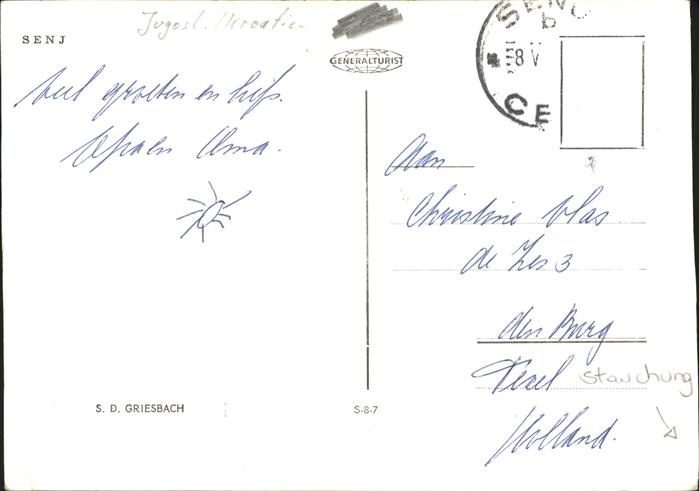 Jugosl. / Kroatien
SENJ
GENERALTURIST
SENJ
b
8 V
CE
Veel groeten en liefs.
Opa en Oma.
Aan
Christine Vlas
de Zes 3
den Burg
Texel
Stauchung
Holland.
S. D. GRIESBACH
S-8-7